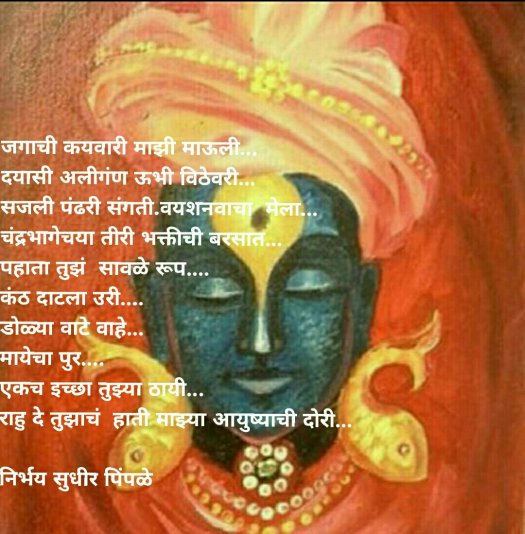 जगाची कयवारी माझी माऊली...
दयासी अलीगंण ऊभी विठेवरी...
सजली पंढरी संगती.वयशनवाचा  मेला...
चंद्रभागेचया तीरी भक्तीची बरसात...
पहाता तुझं  सावळे रूप....
कंठ दाटला उरी....
डोळ्या वाटे वाहे...
मायेचा पुर....
एकच इच्छा तुझ्या ठायी...
राहु दे तुझाचं  हाती माझ्या आयुष्याची दोरी...
निर्भय सुधीर पिंपळे